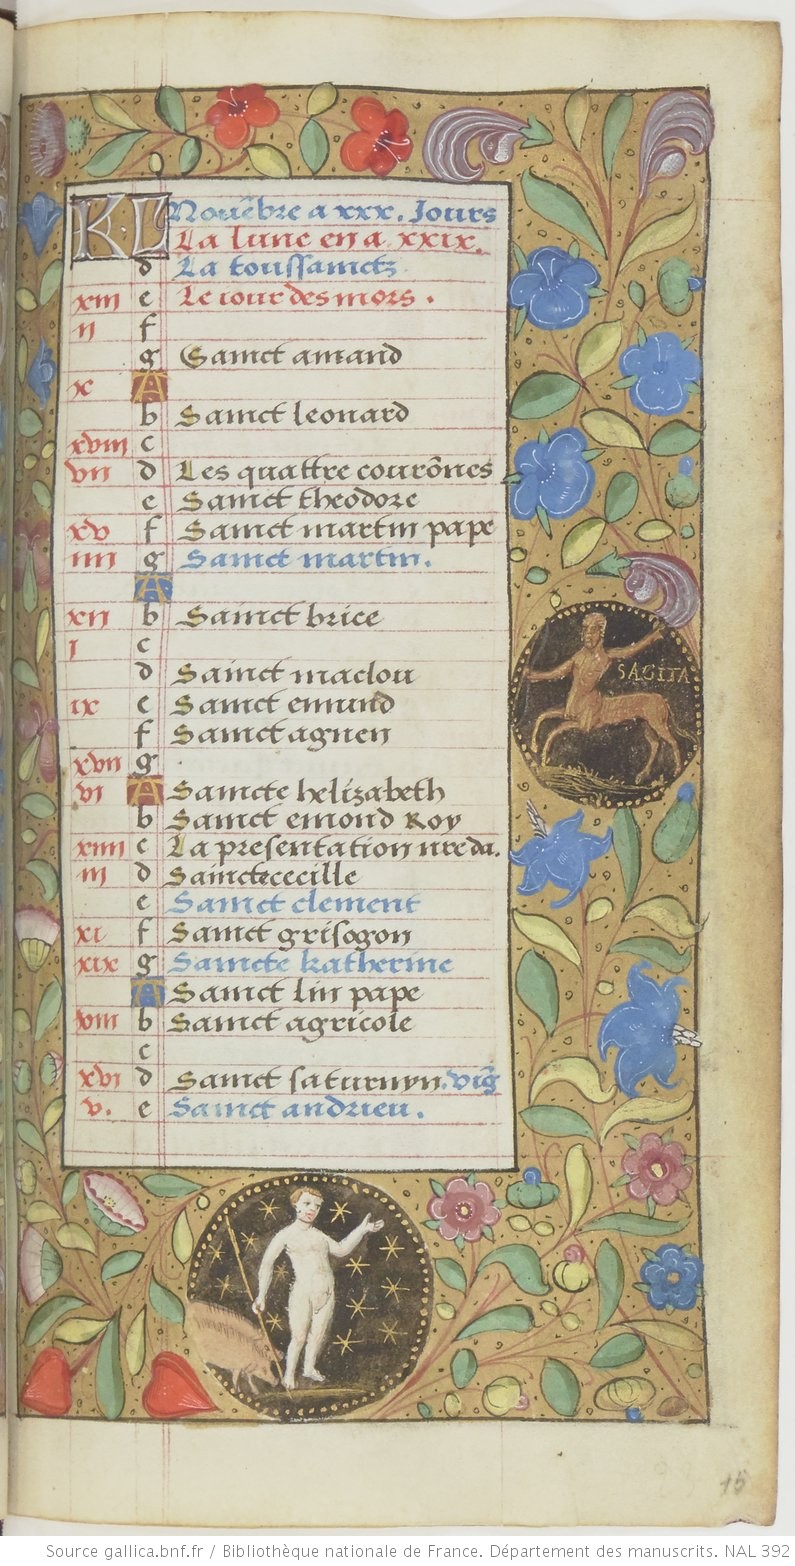 KL Nouēbre a xxx. Jours
La lune en a xxix.
d La toussainctz
xiii e Le iour des mors .
ii f
g Sainct amand
x A
b Sainct leonard
xviii c
vii d Les quattre courōnes
e Sainct theodore
xv f Sainct martin pape
iiii g Sainct martin .
A
xii b Sainct brice
i c
d Sainct maclou
ix e Sainct emund
f Sainct agnen
xvii g
vi A Saincte helizabeth
b Sainct emond Roy
xiiii c La presentation nreda.
iii d Sainctececille
e Sainct clement
xi f Sainct grisogon
xix g Saincte katherine
A Sainct lin pape
viii b Sainct agricole
c
xvi d Sainct saturnyn. vig̃
v. e Sainct andrieu .
SAGITA
15
Source gallica.bnf.fr / Bibliothèque nationale de France. Département des manuscrits. NAL 392